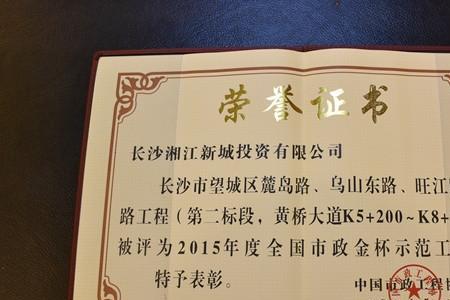 荣誉证书
长沙湘江新城投资有限公司
长沙市望城区麓岛路、乌山东路、旺江
路工程（第二标段，黄桥大道K5+200~K8+
被评为2015年度全国市政金杯示范工
特予表彰。
中国市政工程协